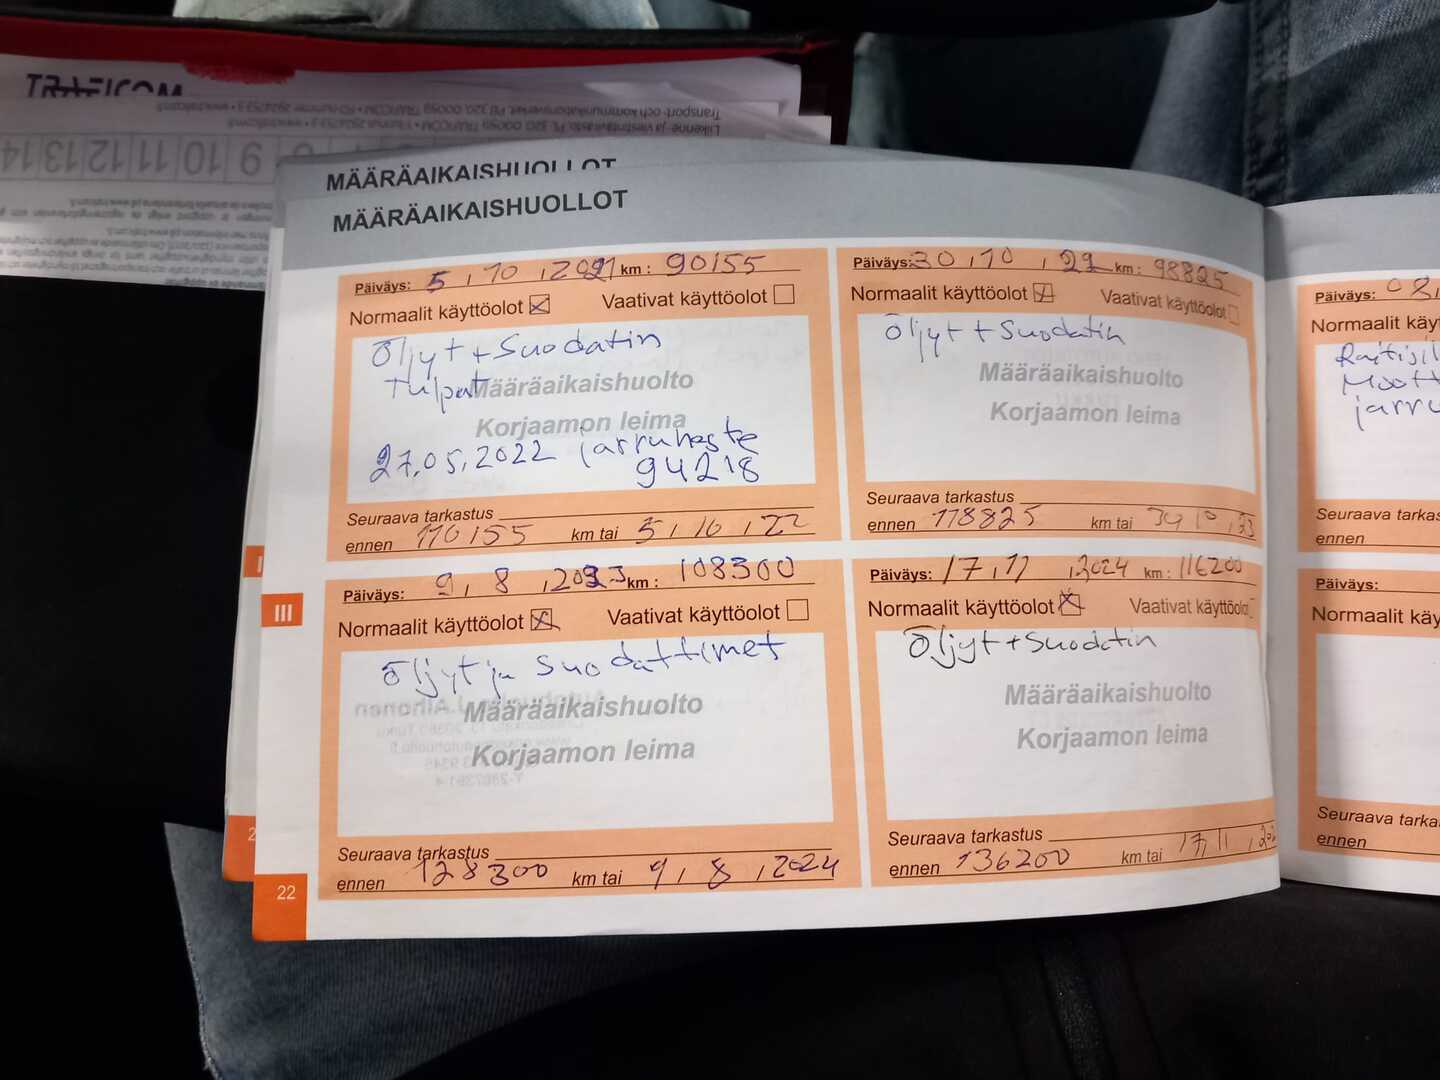 TRAFICOM
Liikenne- ja viestintävirasto, PL 320, 00059 TRAFICOM
Transport- och kommunikationsverket, PB 320, 00059 TRAFICOM
9 10 11 12 13 14
MÄÄRÄAIKAISHUOLLOT
MÄÄRÄAIKAISHUOLLOT
Päiväys: 5, 10, 2021 km: 90155
Normaalit käyttöolot Vaativat käyttöolot
Öljyt + Suodatin
Tulpat
Määräaikaishuolto
Korjaamon leima
27.05.2022 jarruneste
94218
Seuraava tarkastus
ennen 110155 km tai 5, 10, 22
Päiväys: 30, 10, 22 km: 98825
Normaalit käyttöolot Vaativat käyttöolot
Öljyt + Suodatin
Määräaikaishuolto
Korjaamon leima
Seuraava tarkastus
ennen 118825 km tai
III
Päiväys: 9, 8, 2023 km: 108300
Normaalit käyttöolot Vaativat käyttöolot
Öljyt ja Suodattimet
Määräaikaishuolto
Korjaamon leima
Seuraava tarkastus
ennen 128300 km tai 9, 8, 2024
Päiväys: 17, 11, 2024 km: 116200
Normaalit käyttöolot Vaativat käyttöolot
Öljyt + Suodatin
Määräaikaishuolto
Korjaamon leima
Seuraava tarkastus
ennen 136200 km tai 17, 11,
22
Päiväys: 08,
Normaalit
Seuraava
ennen
Päiväys:
Normaalit
Seuraava
ennen